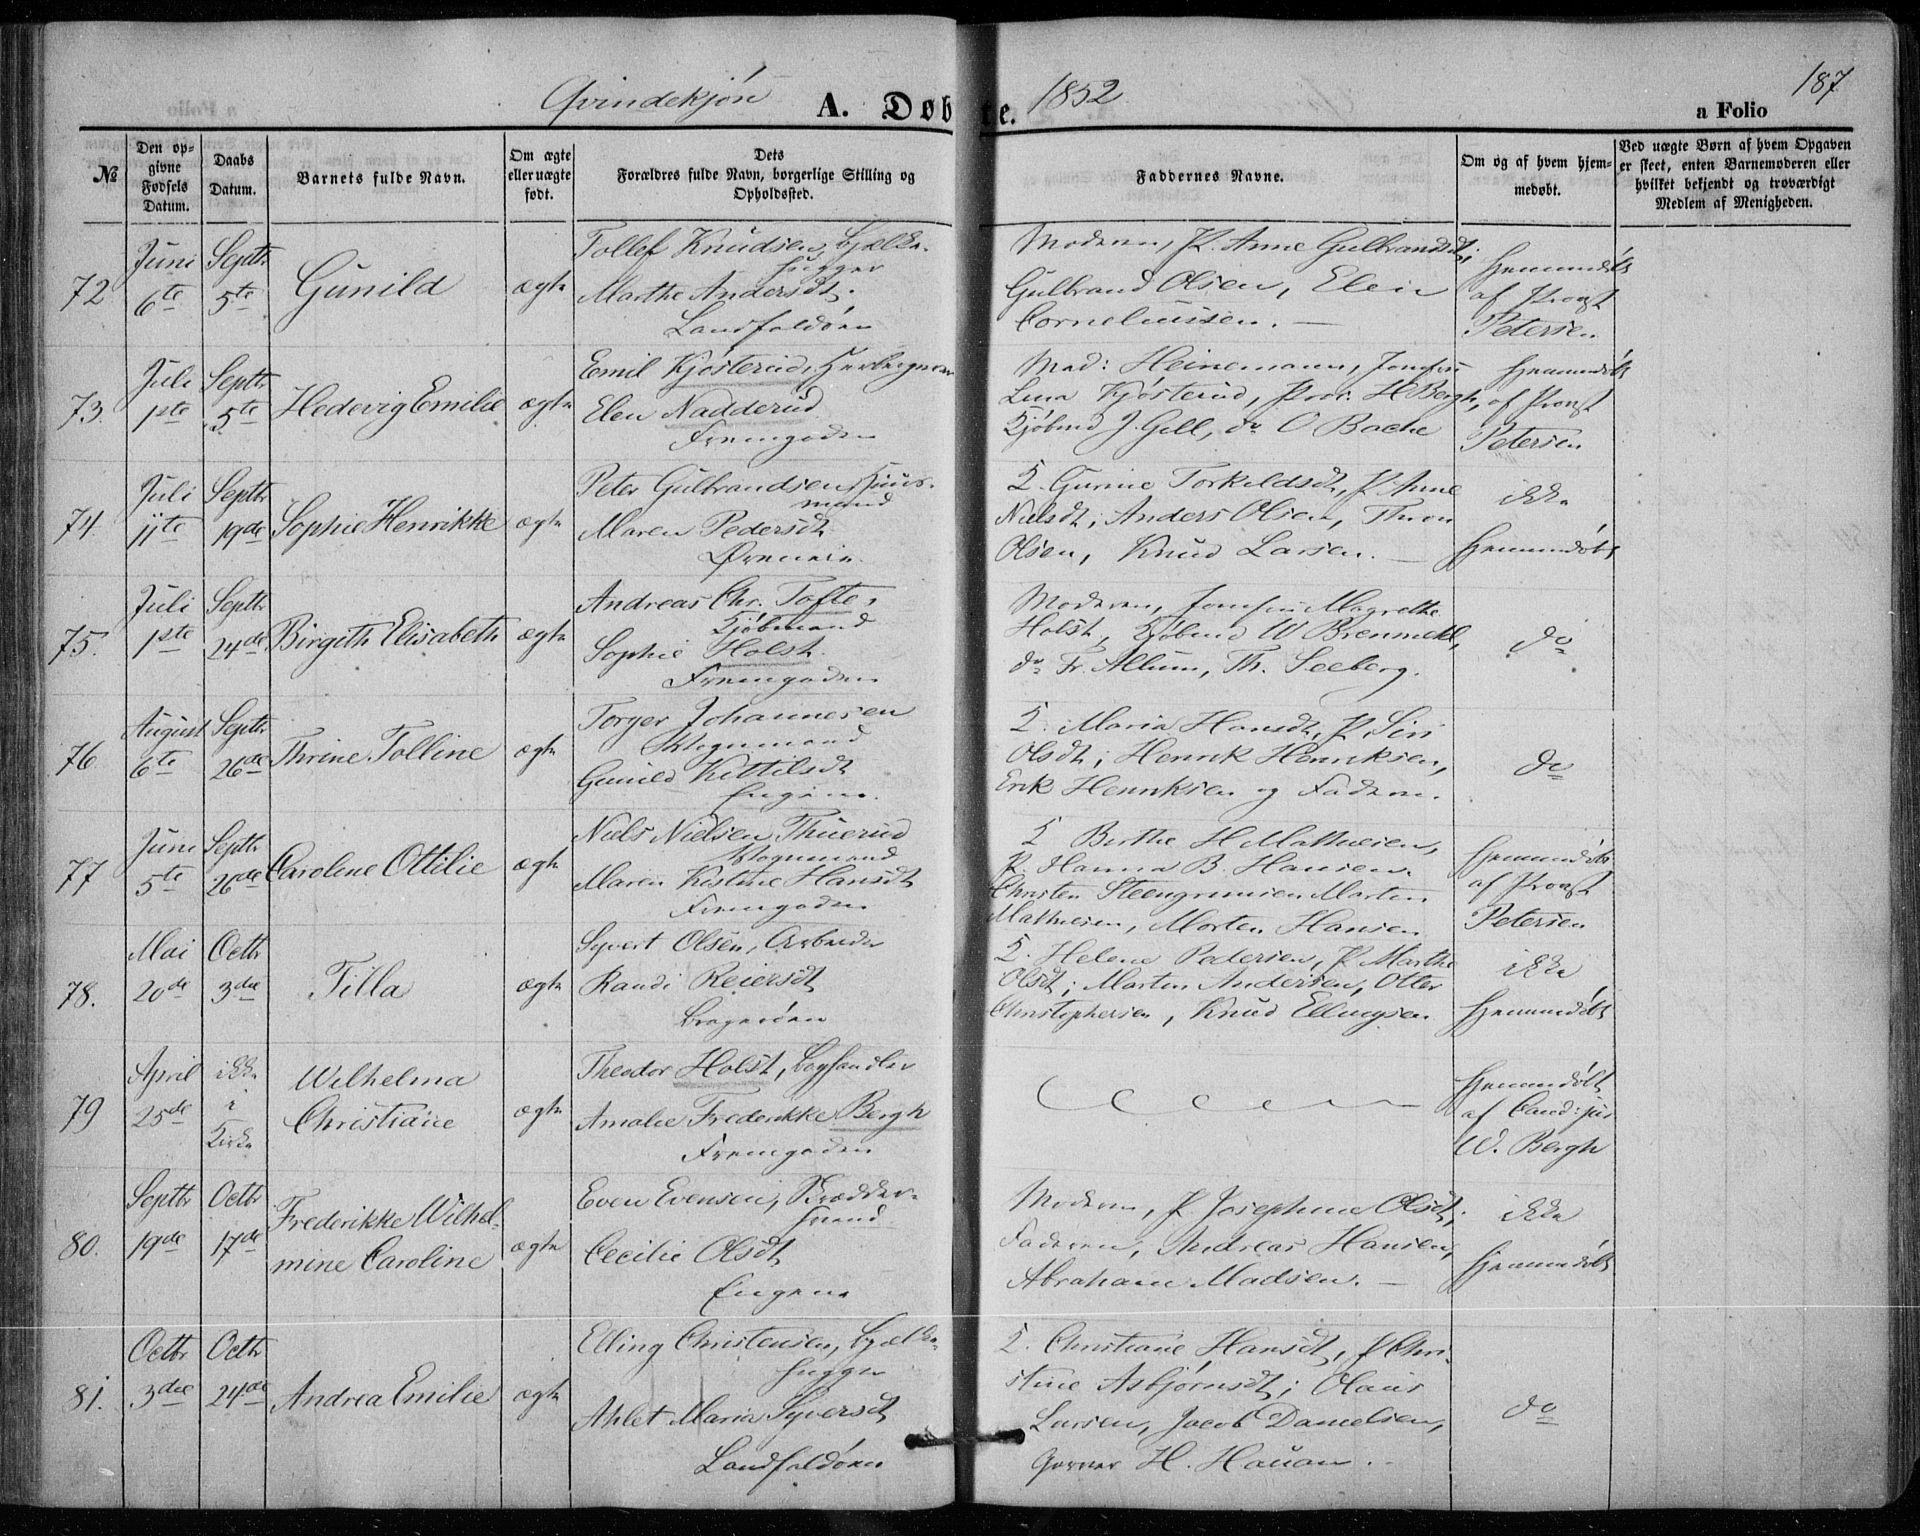 Qvindekjön
A. Døbte.
1852
a Folio
187
№
Den op-
givne
Fødsels
Datum.
Daabs
Datum.
Barnets fulde Navn.
Om ægte
eller uægte
født.
Dets
Forældres fulde Navn, borgerlige Stilling og
Opholdssted.
Faddernes Navne.
Om og af hvem hjem-
medøbt.
Ved uægte Børn af hvem Opgaven
er skeet, enten Barnemoderen eller
hvilket bekjendt og troværdigt
Medlem af Menigheden.
72
Juni
6te
Septbr
5te
Gunild
ægte
Tollef Knudsen, Bjelke-
hugger
Marthe Andersdt.
Landfaldöen
Moderen, P. Anne Gulbrandsdt;
Gulbrand Olsen, Elen
Corneliussen. —
Hjemmedöbt
af Provst
Petersen
73.
Juli
1ste
Septbr
5te
Hedevig Emilie
ægte
Emil Kjösterud, Herbergerer
Elen Nadderud
Fremgaden
Mad: Heinemann, Jomfru
Lina Kjösterud, Pror. H Bergh,
Kjöbmd J. Gell, do O Bache
Hjemmedöbt
af Provst
Petersen
74.
Juli
11te
Septbr
19de
Sophie Henrikke
ægte
Peter Gulbrandsen, Huus-
mand
Maren Pedersdt.
Öreneie
K. Gurine Torkeldsdt, P. Anne
Nielsdt; Anders Olsen, Thron
Olsen, Knud Larsen. —
ikke
Hjemmedöbt
75.
Juli
1ste
Septbr
24de
Birgith Elisabeth
ægte
Andreas Chr. Tofte,
Kjöbmand
Sophie Holst.
Fremgaden
Moderen, Jomfru Magrethe
Holst, Kjöbmd W Bremmell,
do Fr. Allum, Th. Seeberg.
do
76
August
6te
Septbr
26de
Thrine Tolline
ægte
Torger Johannesen
Vognmand
Gunild Kittilsdt
Engene.
K. Maria Hansdt, P. Siri
Olsdt; Henrik Henriksen,
Erik Henriksen og Faderen.
do
77
Juni
5te
Septbr
26de
Caroline Ottilie
ægte
Niels Nielsen Thuerud
Vognmand
Maren Kistine Hansdt
Fremgaden
K Berthe H Mathiesen,
P. Hanna B. Hansen.
Christen Steengrimsen Marten
Mathiesen, Morten Hansen
Hjemmedöbt
af Provst
Petersen
78.
Mai
20de
Octbr
3die
Tilla
ægte
Syvert Olsen, Arbeider
Randi Reiersdt
Bragerøen
K. Helene Pedersen, P. Marthe
Olsdt; Marten Andersen, Otter
Christophersen, Knud Ellingsen
ikke
Hjemmedöbt
79
April
25de
ikke
i
Kirke
Wilhelma
Christiane
ægte
Theodor Holst, Boghandler
Amalie Frederikke Bergh
Fremgaden
Hjemmedöbt
af Cand: jur
W. Bergh
80.
Septbr
19de
Octbr
17de
Frederikke Wilhel-
mine Caroline
ægte
Even Evensen, Brædder-
mand
Cecilie Olsdt
Engene
Moderen, P. Josephine Olsdt;
Faderen, Andreas Hansen,
Abraham Madsen. —
ikke
Hjemmedöbt
81.
Octbr
3die
Octbr
24de
Andrea Emilie
ægte
Elling Christensen, Bjelke-
hugger
Ahlet Maria Syversdt
Landfaldöen
K. Christiane Hansdt, P Chri-
stine Asbjörnsdt; Olaus
Larsen, Jacob Danielsen,
Garver H. Hauan.
do